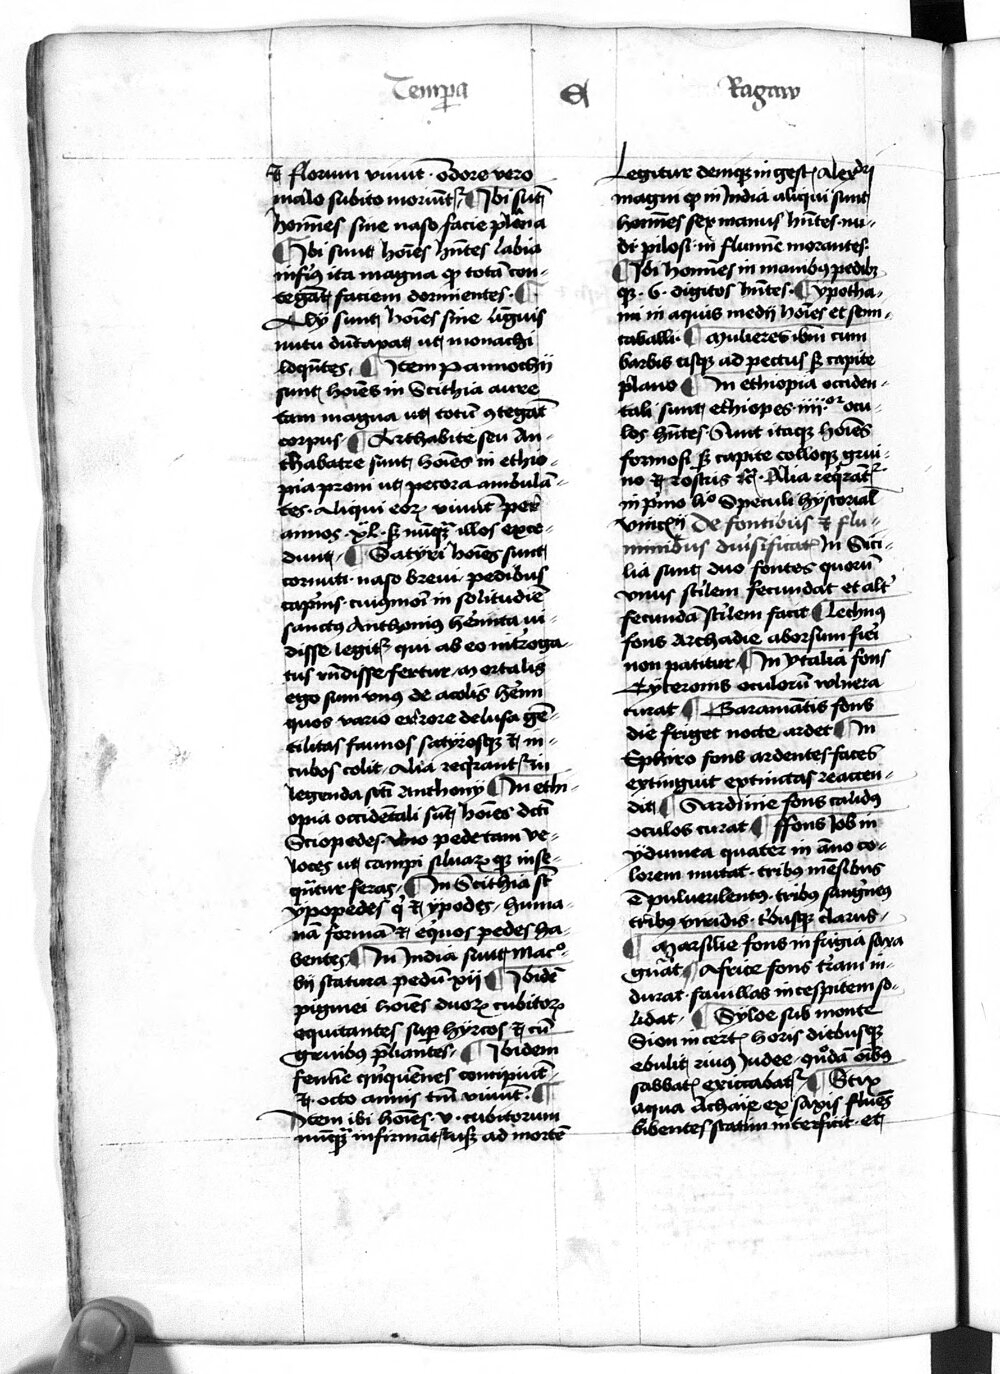 Tempa Et Ragaw
⁊ florum viuūt · odore vero
malo subito moriūtꝛ ¶ Ibi sūt
hoīnes sine naso facie plana
¶ Ibi sunt hoīes hn̄tes labia
infiꝰ ita magna qꝫ totā con-
tegāt faciem dormientes · ¶
Alij sunt hoīes sine liguis
nutu dūtaxat ut monachi
loqūtes ¶ Item Pannothij
sunt hoīes in Scithia aure
tam magna ut totū ꝯtegāt
corpus ¶ Arthabite seu An-
thabatre sunt hoīes in ethio
pia proni ut pecora ambulā-
tes · Aliqui eoꝝ viuūt per
annos · xl · sꝫ nūqꝫ illos exce-
dunt ¶ Satyri hoīes sunt
cornuti · naso breui · pedibus
caprinis · cuiꝯmōi in solitudīe
sanctꝯ Anthoniꝯ hemita vi-
disse legitꝛ qui ab eo introga
tus rn̄disse fertur · Mortalis
ego sum vnꝯ de acolis hemi
quos vario errore delusa gē-
tilitas faunos satyrosqꝫ ⁊ in-
cubos colit · Alia reqrantꝛ in
legenda sct̄i Anthonij ¶ In ethi-
opia occidētali sūt hoīes dct̄i
Sciopedes · vno pede tam ve-
loces ut campi siluaꝝ qꝫ inse-
qūtur feras ¶ In Scithia st̄
ypopedes qͥ ⁊ ypodes · huma-
nā formā ⁊ equos pedes ha-
bentes ¶ In India sunt Macᵒ
bij statura pedū · xij ¶ Ibidē
pigmei hoīes duoꝝ cubitoꝝ
equitantes sup hyrcos ⁊ cū
gruibus pliantes · ¶ Ibidem
femīe qnquēnes concipiūt
⁊ · octo annis tm̄ viuūt · ¶
Item ibi hoīes · v · cubitorum
nūqꝫ infirmātꝛ usqꝫ ad mortē
Legitur demqꝫ in gest̄ Alexdri
magni qꝫ in India aliqui sunt
homīes sex manus hn̄tes · nu-
di pilosi · in flumīe morantes ·
¶ Ibi homīes in manibꝯ pedibꝫ
qꝫ · 6 · digitos hn̄tes · ¶ ypotha-
mi in aquis medij hoīes et sem
caballi · ¶ Mulieres ibi cum
barbis usqꝫ ad pectus sꝫ capite
plano ¶ In ethiopia occiden-
tali sunt ethiopes · iiij ͦʳ ocu-
los hn̄tes · Sunt itaqꝫ hoīes
formosi sꝫ capite colloqꝫ grui-
no ⁊ rostris ⁊c̄ · Alia reqrātꝛ
in pmo liᵒ Speculi hystorial
vincēij De fontibus ⁊ flu-
minibus diuisificat̄ In Sici-
lia sunt duo fontes quorū
vnus st̄ilem fecundat et alt̄
fecundā st̄ilem facit ¶ Lechnꝯ
fons Archadie aborsum fieri
non patitur ¶ In ytalia fons
Cyceronis oculorū vulnera
curat ¶ Garamātis fons
die friget nocte ardet ¶ In
Ephiro fons ardentes faces
extinguit extinctas reaccen-
dit ¶ Sardinie fons calidꝯ
oculos curat ¶ ffons Iob in
ydumea quater in āno co-
lorem mutat · tribꝯ mēsibus
ē puluerulentꝯ · tribꝯ sangneꝯ
tribꝯ viridis · tbusqꝫ clarus ·
¶ Marsilie fons in frigia saxa
gn̄at ¶ Africe fons t̄ram in-
durat · fauillas in cespitem so-
lidat · ¶ Syloe sub monte
Sion in cert̄ horis diebusqꝫ
ebulit riuꝯ Iudee · qͦdā oībꝯ
sabbat̄ exiccabatꝛ ¶ Stix
aqua Achaie ex saxis fluēs
bibentes statim interficit · et